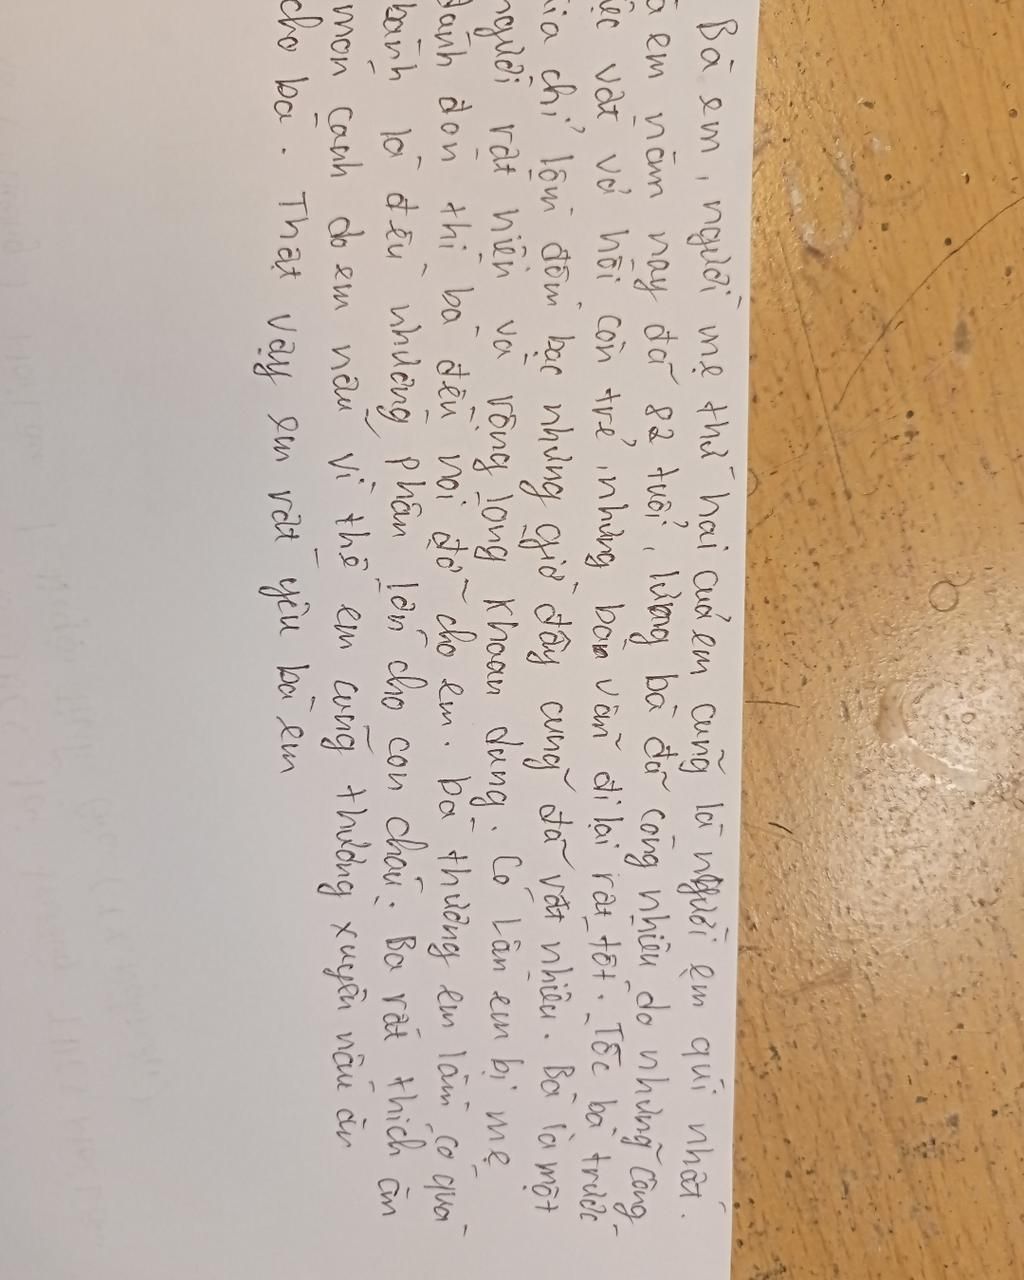 Bà em, người mẹ thứ hai của em cũng là người em quí nhất.
em năm nay đã 82 tuổi, lưng bà đã còng nhiều do những công
vất vả hồi còn trẻ, nhưng bà vẫn đi lại rất tốt. Tóc bà trước
kia chỉ lốm đốm bạc nhưng giờ đây cũng đã rất nhiều. Bà là một
người rất hiền và rộng lòng khoan dung. Có lần em bị mẹ
đánh đòn thì bà đến nói đỡ cho em. bà thường em lắm có quà
bánh là đều nhường phần lớn cho con cháu. Bà rất thích ăn
món canh do em nấu vì thế em cũng thường xuyên nấu ăn
cho bà. Thật vậy em rất yêu bà em